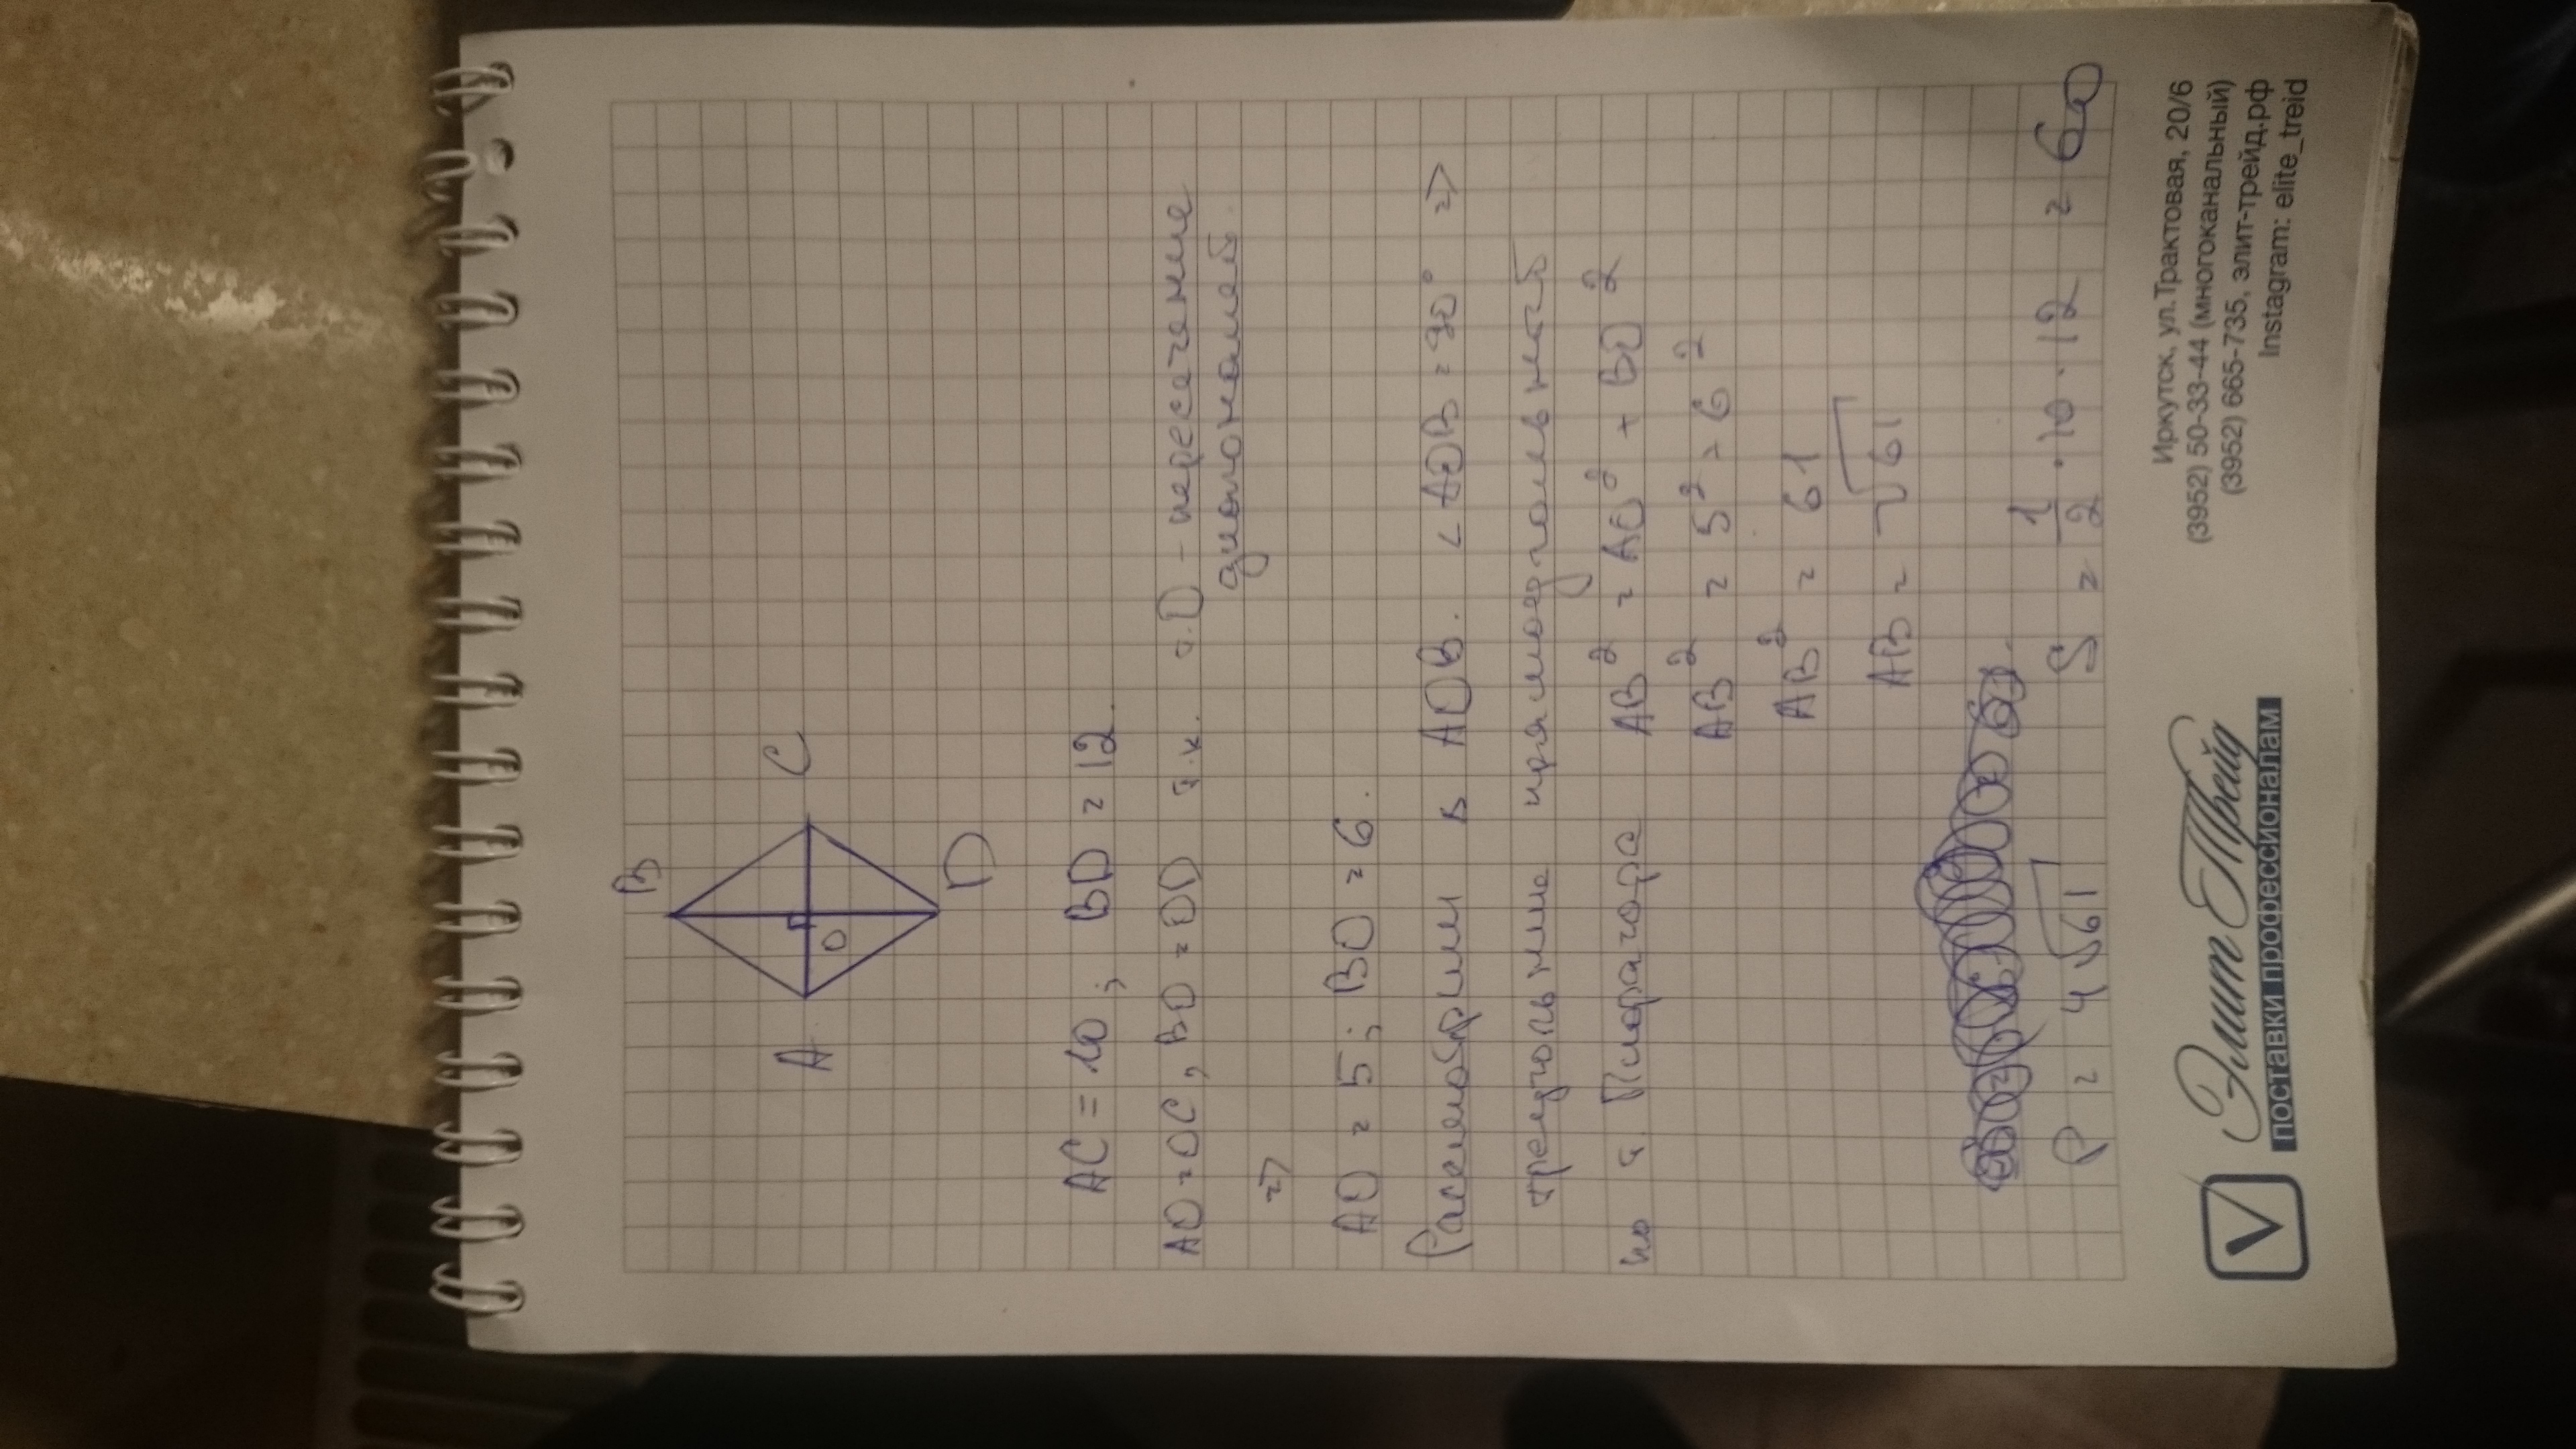 B
A
C
O
D
AC = 10; BD = 12.
AO = OC, BO = OD т.к. т.О - пересечение
диагоналей.
=>
AO = 5; BO = 6.
Рассмотрим в AOB. < AOB = 90° =>
треугольник прямоугольный
по т. Пифагора AB² = AO² + BO²
AB² = 5² + 6²
AB² = 61
AB = √61
P = 4√61 S = 1/2 · 10 · 12 = 60
Элит Трейд
поставки профессионалам
Иркутск, ул.Трактовая, 20/6
(3952) 50-33-44 (многоканальный)
(3952) 665-735, элит-трейд.рф
Instagram: elite_treid